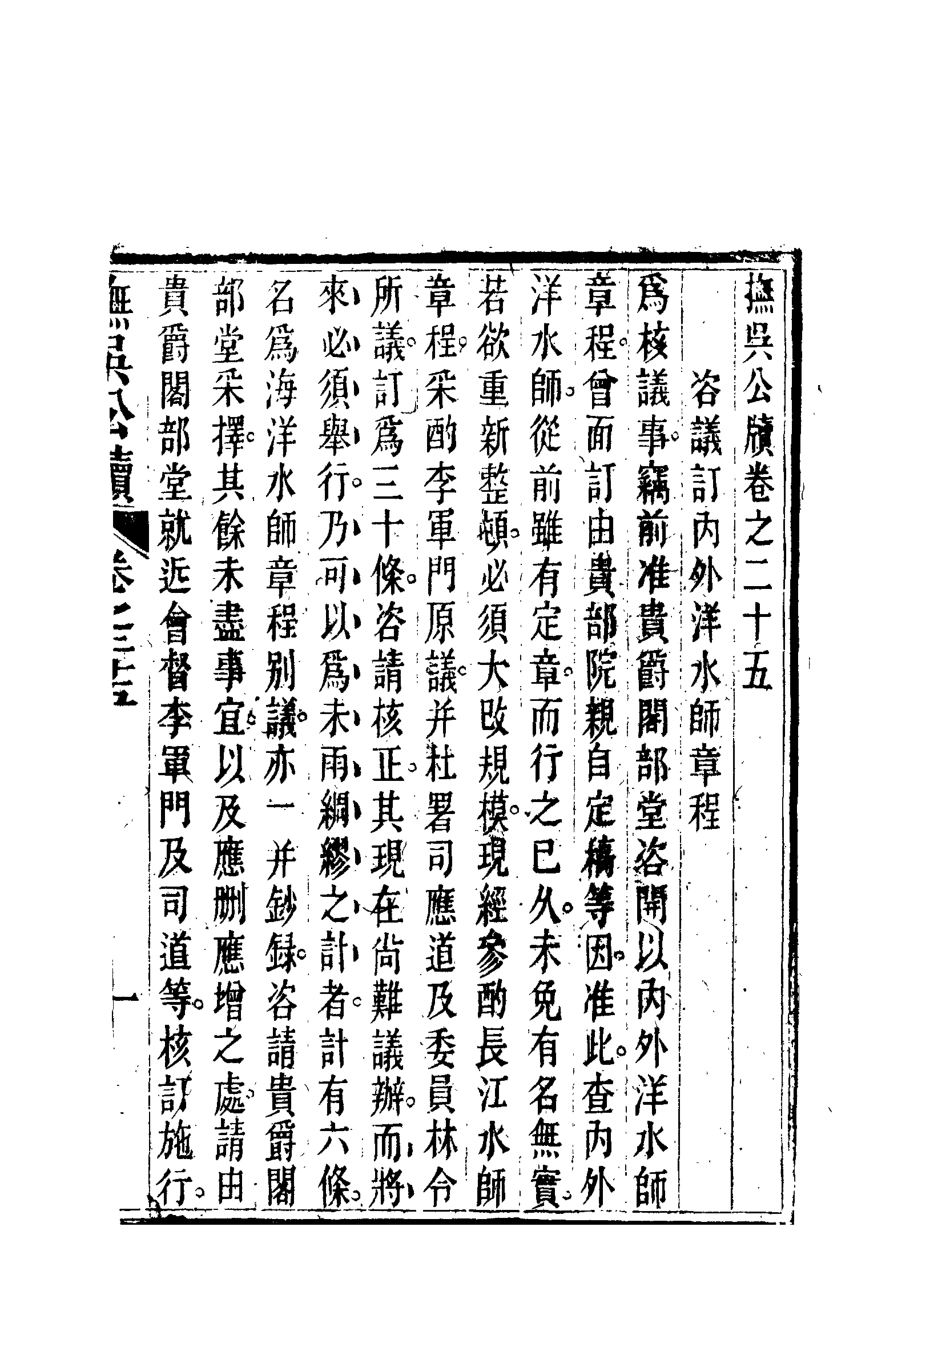 撫吳公牘卷之二十五
咨議訂內外洋水師章程
爲核議事。竊前准貴爵閣部堂咨開以內外洋水師
章程。曾面訂由貴部院親自定稿等因。准此。查內外
洋水師。從前雖有定章。而行之已久。未免有名無實。
若欲重新整頓。必須大改規模。現經參酌長江水師
章程。采酌李軍門原議。并杜署司應道及委員林令
所議。訂爲三十條。咨請核正。其現在尙難議辦。而將
來必須舉行。乃可以爲未雨綢繆之計者。計有六條。
名爲海洋水師章程別議。亦一并鈔錄。咨請貴爵閣
部堂采擇。其餘未盡事宜。以及應刪應增之處。請由
貴爵閣部堂就近會督李軍門及司道等。核訂施行。
撫吳公牘 卷之二十五 一